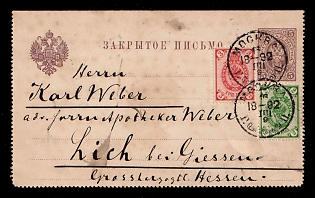 ЗАКРЫТОЕ ПИСЬМО
МОСКВА
18-92
III
18-92
III
Herrn
Karl Weber
adr. Herrn Apotheker Weber
Lich bei Giessen
Grossherzogt. Hessen.